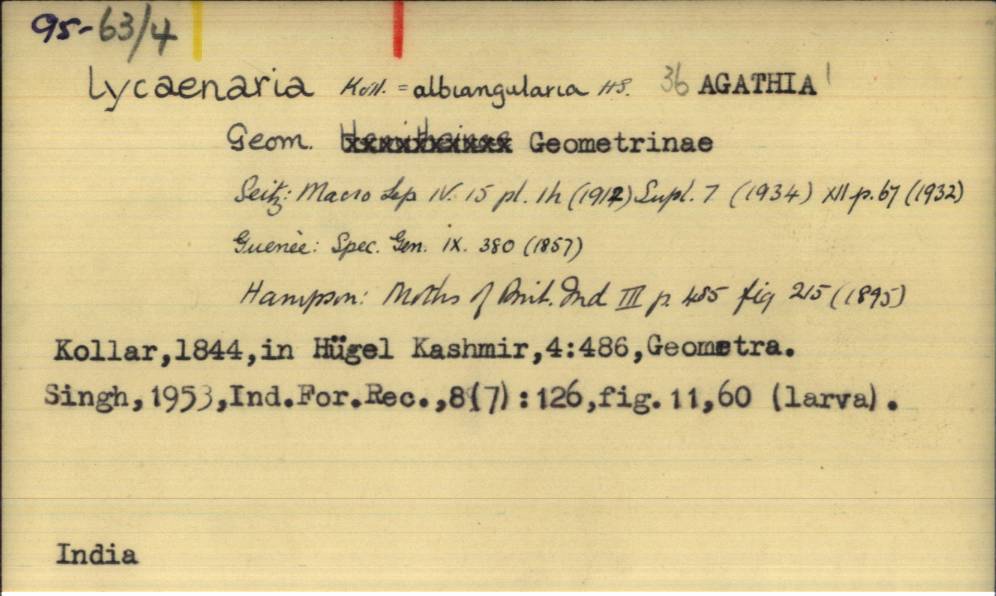 95-63/4
Lycaenaria Koll. = albiangularia HS. 36 AGATHIA
Geom. Geometrinae
Seitz: Macro Lep IV. 15 pl. 1h (1912) Supl. 7 (1934) XII p. 67 (1932)
Guenèe: Spec. Gen. ix. 380 (1857)
Hampson: Moths of Brit. Ind III p. 485 fig 215 (1895)
Kollar,1844,in Hügel Kashmir,4:486,Geometra.
Singh,1953,Ind.For.Rec.,8(7):126,fig.11,60 (larva).
India